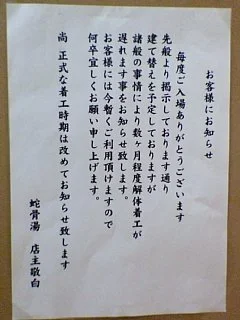 お客様にお知らせ
毎度ご入場ありがとうございます
先般より掲示しております通り
建て替えを予定しておりますが
諸般の事情により数ヶ月程度解体着工が
遅れます事をお知らせ致します。
お客様には今暫くご利用頂けますので
何卒宜しくお願い申し上げます。
尚 正式な着工時期は改めてお知らせ致します
蛇骨湯 店主敬白